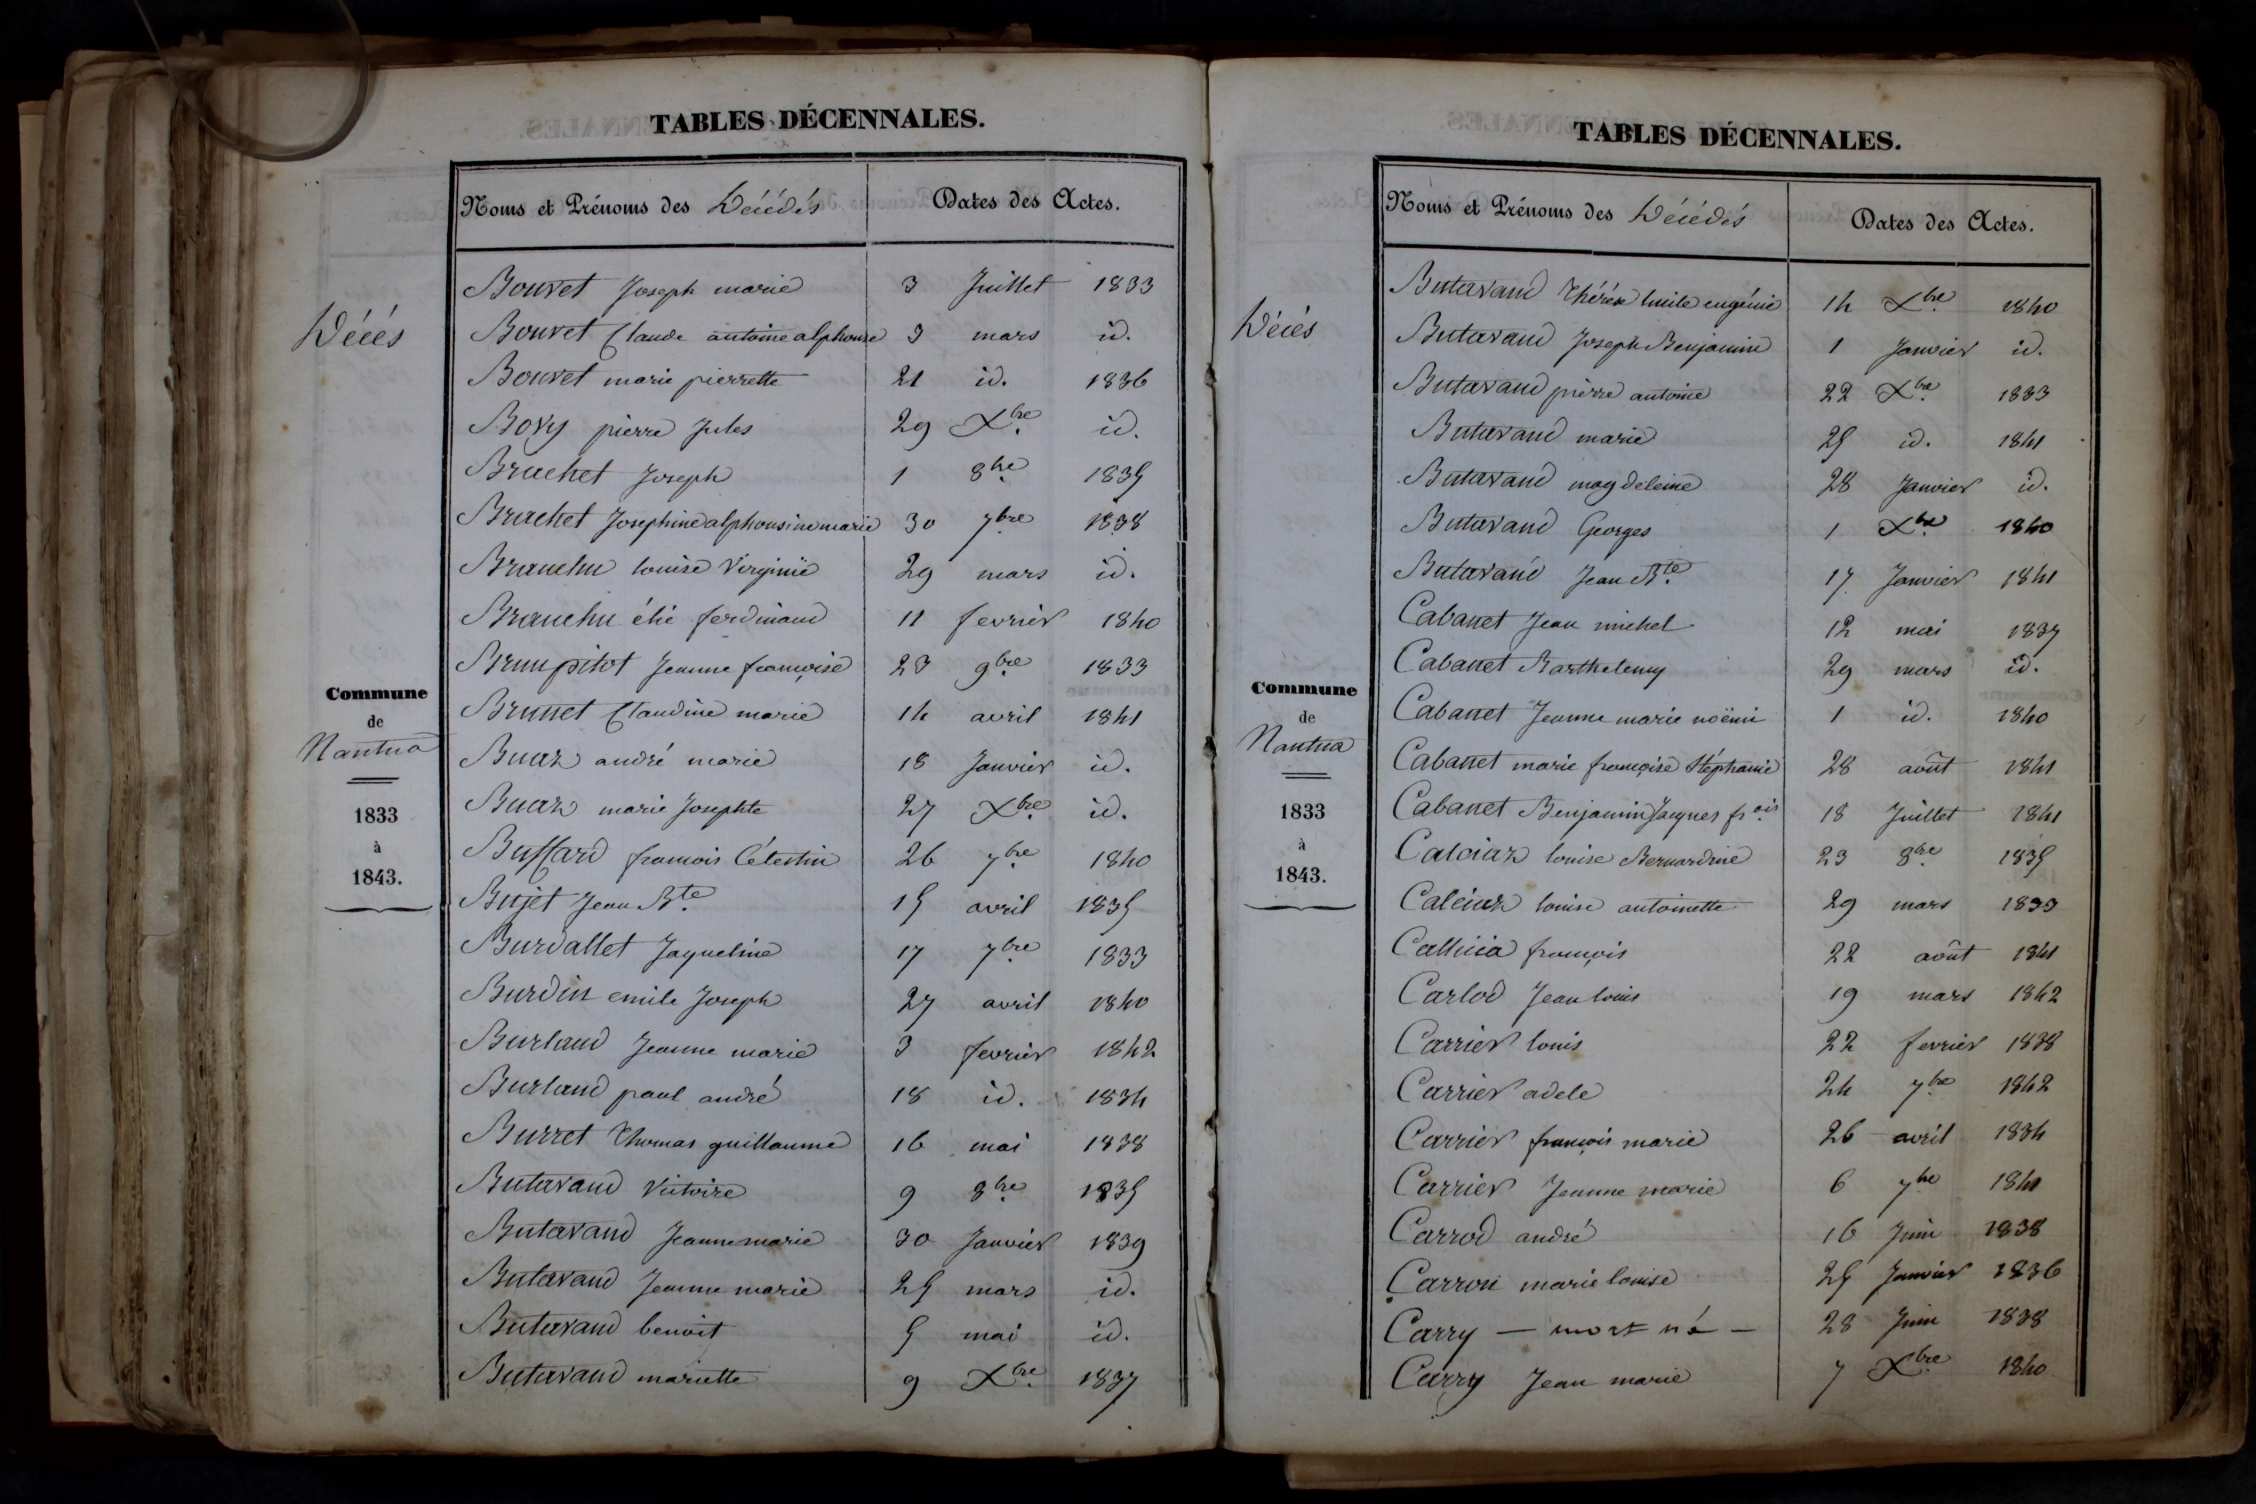 TABLES DÉCENNALES.
Noms et Prénoms des Décédés Dates des Actes.
Décés
Commune
de
Nantua
1833
à
1843.
Bouvet Joseph marie 3 Juillet 1833
Bouvet Claude antoine alphonse 3 mars id.
Bouvet marie pierrette 21 id. 1836
Bovy pierre Jules 29 Xbre id.
Brachet Joseph 1 8bre 1835
Brachet Josephine alphonsine marie 30 7bre 1838
Branchu louise Virginie 29 mars id.
Branchu élie ferdinand 11 fevrier 1840
Brunpitot Jeanne françoise 23 9bre 1833
Brunet Claudine marie 14 avril 1841
Buaz andré marie 18 Janvier id.
Buaz marie Josephte 27 Xbre id.
Buffard francois Célestin 26 7bre 1840
Bujet Jean Bte 15 avril 1835
Burdallet Jaqueline 17 7bre 1833
Burdin emile Joseph 27 avril 1840
Burland Jeanne marie 3 fevrier 1842
Burland paul andré 18 id. 1834
Burret Thomas guillaume 16 mai 1838
Butavand Victoire 9 8bre 1835
Butavand Jeanne marie 30 Janvier 1839
Butavand Jeanne marie 25 mars id.
Butavand benoit 5 mai id.
Butavand mariette 9 Xbre 1837
TABLES DÉCENNALES.
Noms et Prénoms des Décédés Dates des Actes.
Décés
Commune
de
Nantua
1833
à
1843.
Butavand Thérèse lucile eugénie 14 Xbre 1840
Butavand Joseph Benjamin 1 Janvier id.
Butavand pierre antoine 22 Xbre 1833
Butavand marie 25 id. 1841
Butavand magdeleine 28 Janvier id.
Butavand Georges 1 Xbre 1840
Butavand Jean Bte 17 Janvier 1841
Cabanet Jean michel 12 mai 1837
Cabanet Barthelemy 29 mars id.
Cabanet Jeanne marie noëmi 1 id. 1840
Cabanet marie françoise Stéphanie 28 août 1841
Cabanet Benjamin Jacques frois 18 Juillet 1841
Caloiaz louise Bernardine 23 8bre 1835
Caleiaz louise antoinette 29 mars 1833
françois 22 août 1841
Carlod Jean louis 19 mars 1842
Carrier louis 22 fevrier 1838
Carrier adele 24 7bre 1842
Carrier françois marie 26 avril 1834
Carrier Jeanne marie 6 7bre 1841
Carrod andré 16 Juin 1838
Carron marie louise 25 Janvier 1836
Carry — mort né — 28 Juin 1838
Carry Jean marie 7 Xbre 1840